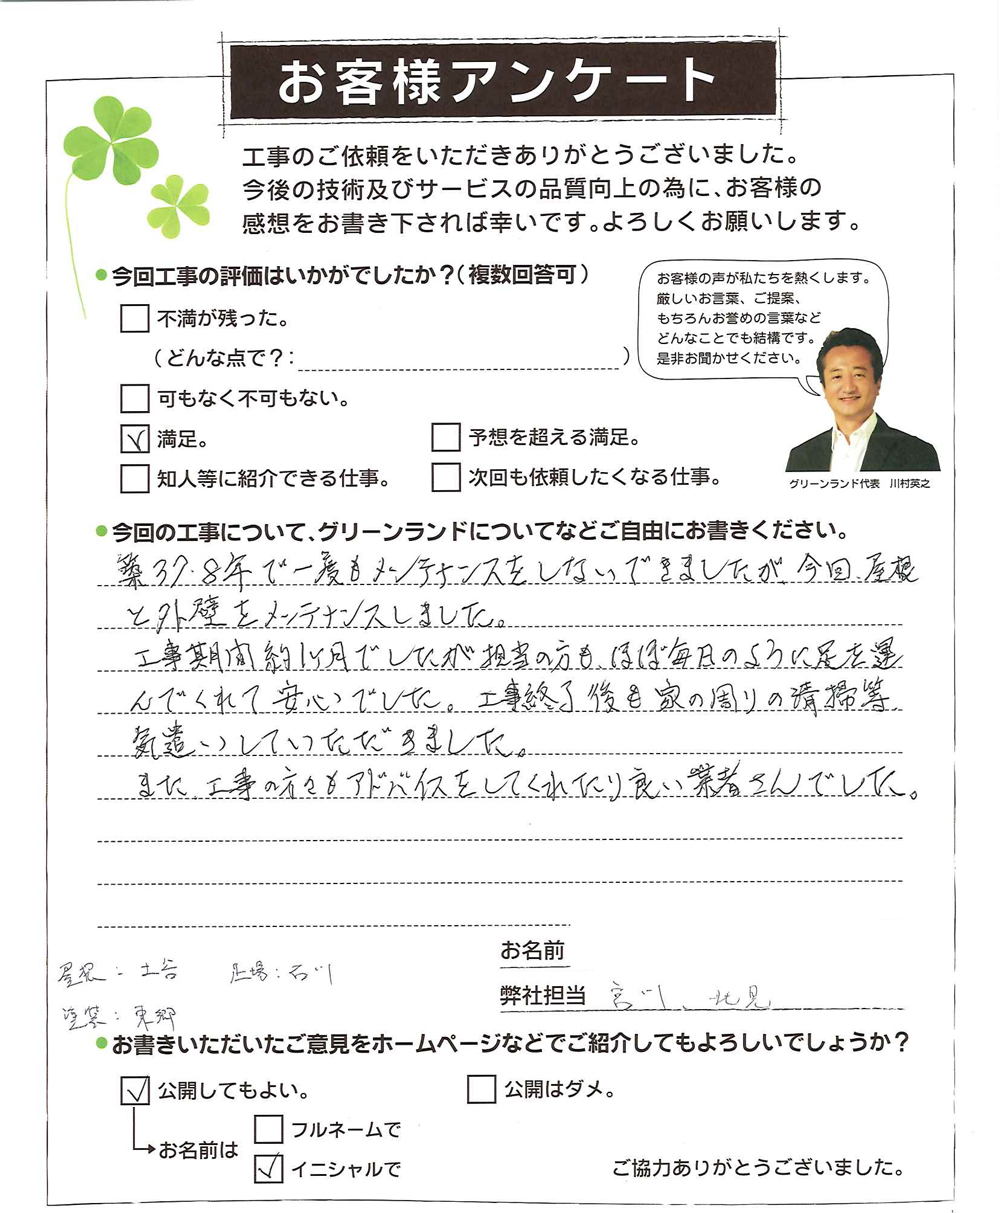 お客様アンケート
工事のご依頼をいただきありがとうございました。
今後の技術及びサービスの品質向上の為に、お客様の
感想をお書き下されば幸いです。よろしくお願いします。
●今回工事の評価はいかがでしたか？（複数回答可）
不満が残った。
（どんな点で？：　　）
可もなく不可もない。
満足。
予想を超える満足。
知人等に紹介できる仕事。
次回も依頼したくなる仕事。
お客様の声が私たちを熱くします。
厳しいお言葉、ご提案、
もちろんお誉めの言葉など
どんなことでも結構です。
是非お聞かせください。
グリーンランド代表　川村英之
●今回の工事について、グリーンランドについてなどご自由にお書きください。
築37.8年で一度もメンテナンスをしないできましたが、今回、屋根
と外壁をメンテナンスしました。
工事期間約1ヶ月でしたが担当の方も、ほぼ毎日のように足を運
んでくれて安心でした。工事終了後も家の周りの清掃等
気遣いしていただきました。
また、工事の方々もアドバイスをしてくれたり良い業者さんでした。
お名前
弊社担当　宮川、北見
屋根：土谷　足場：石川
塗装：東郷
●お書きいただいたご意見をホームページなどでご紹介してもよろしいでしょうか？
公開してもよい。
公開はダメ。
お名前は
フルネームで
イニシャルで
ご協力ありがとうございました。